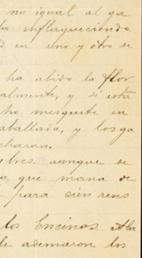 no igual al ga
inflaqueciendo
en uno y otro se
ha abido la flor
almente, y si esta
ho mesquite en
aballada, y los ga
charan.
bres aunque se
a que mana de
para cien reses
los Encinos
le asemaron los